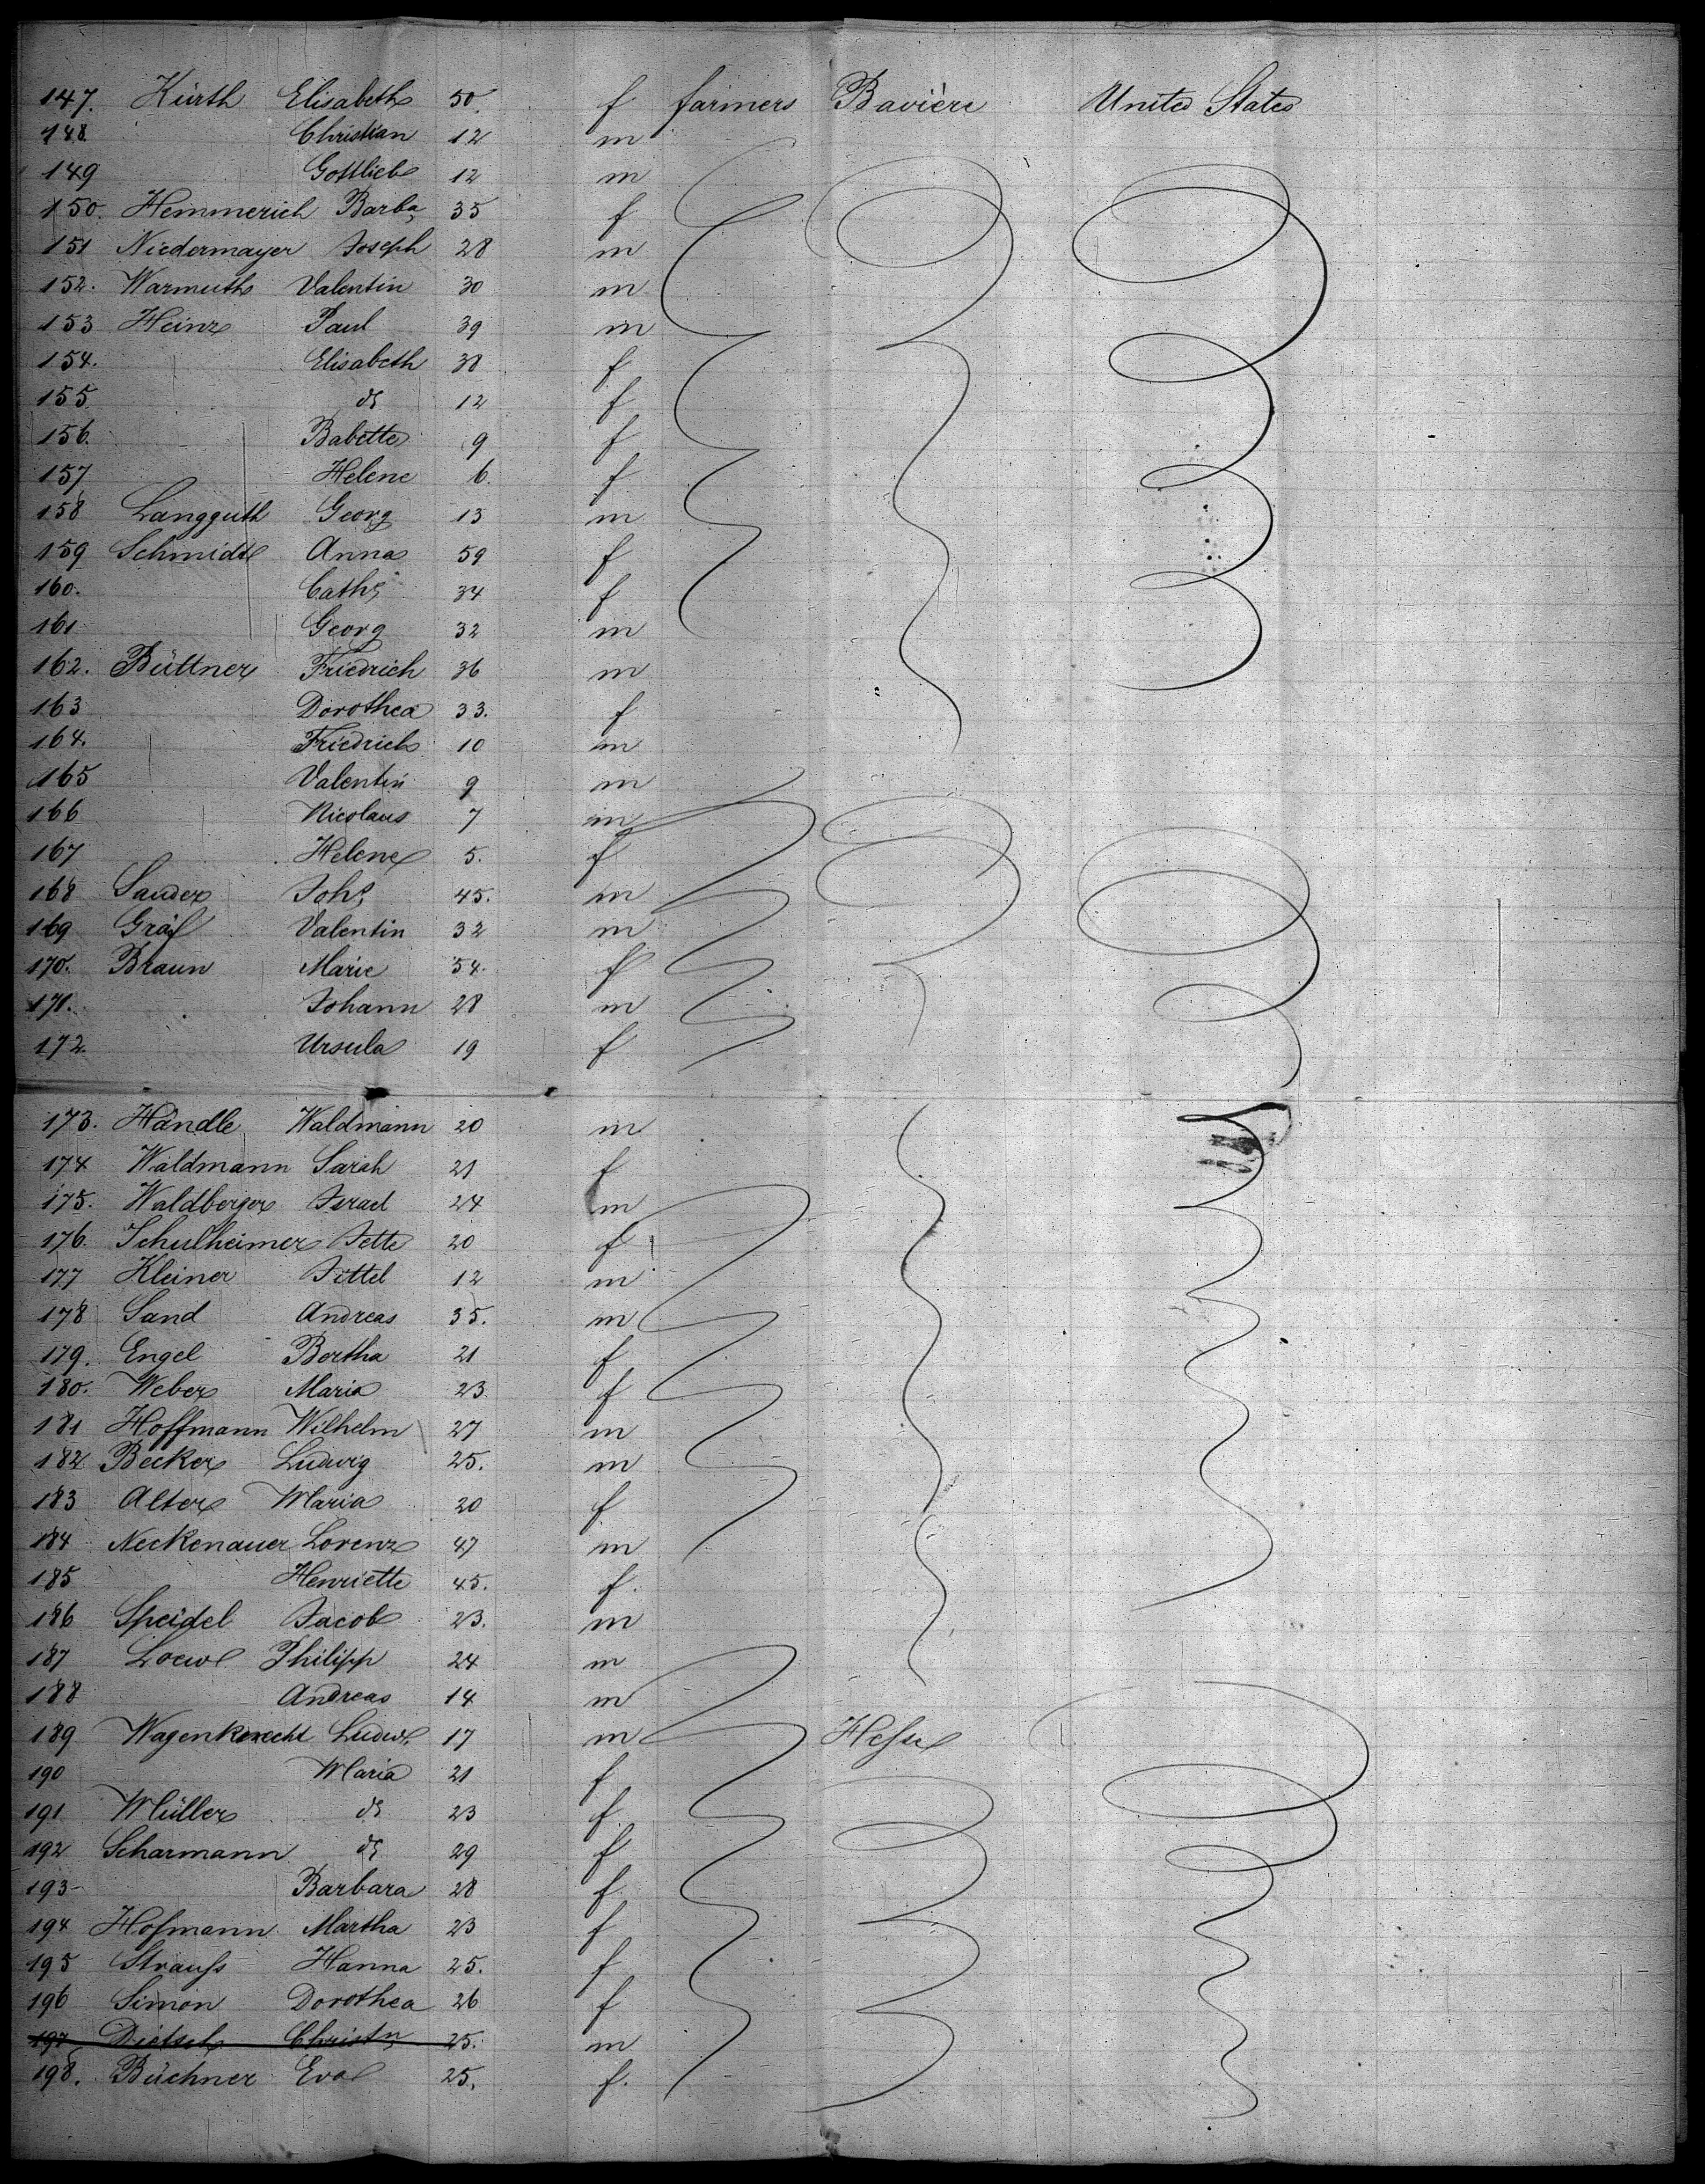 147. Kürth Elisabeth 50. f farmers Bavière United States
148. Christian 12 m
149 Gottlieb 12 m
150. Hemmerich Barba 35 f
151 Niedermayer Joseph 28 m
152. Warmuth Valentin 30 m
153 Heinz Paul 39 m
154. Elisabeth 38 f
155 do 12 f
156. Babette 9 f
157 Helene 6. f
158 Langguth Georg 13 m
159 Schmidt Anna 59 f
160. Cath: 34 f
161 Georg 32 m
162. Büttner Friedrich 36 m
163 Dorothea 33. f
164. Friedrich 10 m
165 Valentin 9 m
166 Nicolaus 7 m
167 Helene 5. f
168 Sauder Joh: 45. m
169 Gräf Valentin 32 m
170. Braun Marie 54. f
171. Johann 28 m
172. Ursula 19 f
173. Händle Waldmann 20 m
174 Waldmann Sarah 21 f
175. Waldberger Israel 24 m
176. Schulheimer Jette 20 f
177 Kleiner Jittel 12 m
178 Sand Andreas 35. m
179. Engel Bertha 21 f
180. Weber Maria 23 f
181 Hoffmann Wilhelm 27 m
182 Becker Ludwig 25. m
183 Alter Maria 20 f
184 Neckenauer Lorenz 47 m
185 Henriette 45. f.
186 Speidel Jacob 23. m
187 Loew Philipp 24 m
188 Andreas 14 m
189 Wagenknecht Ludw. 17 m Hesse
190 Maria 21 f
191 Müller do 23 f
192 Scharmann do 29 f
193 Barbara 28 f.
194 Hofmann Martha 23 f
195 Strauss Hanna 25. f
196 Simon Dorothea 26 f
197 Dietsch Christn 25. m
198. Büchner Eva 25. f.